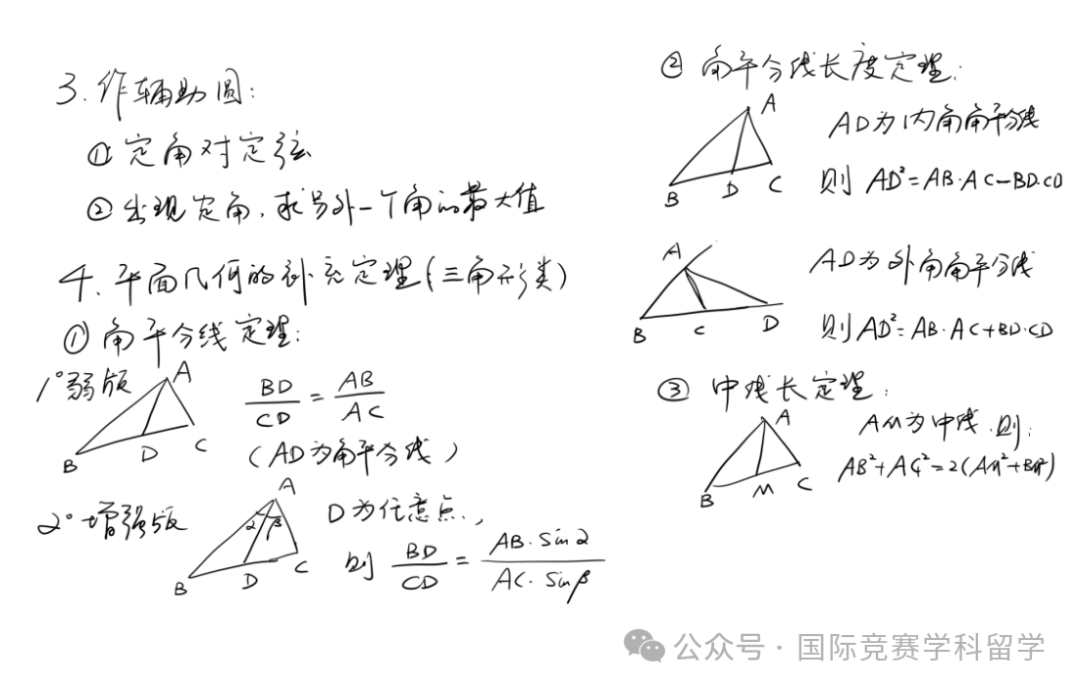 3. 作辅助圆:
① 定角对定弦
② 出现定角, 求另外一个角的最大值
4. 平面几何的补充定理(三角形类)
① 角平分线定理:
1° 弱版
A
B
D
C
BD/CD = AB/AC
(AD为角平分线)
2° 增强版
A
α β
B
D
C
D为任意点,
则 BD/CD = AB·sinα/AC·sinβ
② 角平分线长度定理:
A
B
D
C
AD为内角角平分线
则 AD²=AB·AC-BD·CD
A
B
C
D
AD为外角角平分线
则AD²=AB·AC+BD·CD
③ 中线长定理:
A
B
M
C
AM为中线.则:
AB²+AC²=2(AM²+BM²)
公众号·国际竞赛学科留学